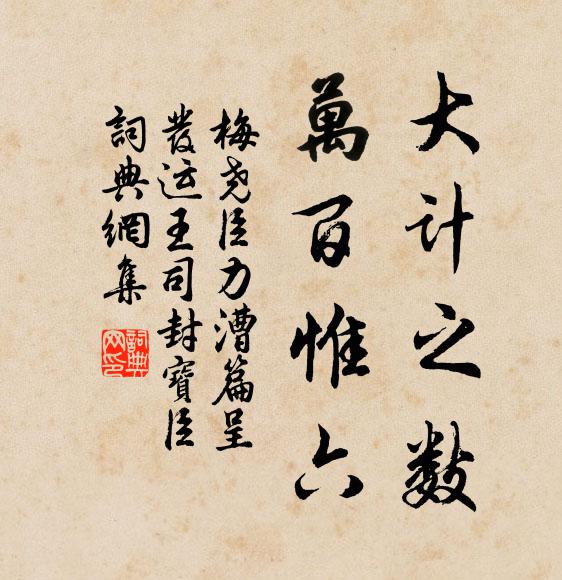 大计之数
萬百惟六
梅尧臣力漕篇呈
發运王司封寶臣
詞典網集
詞典网印